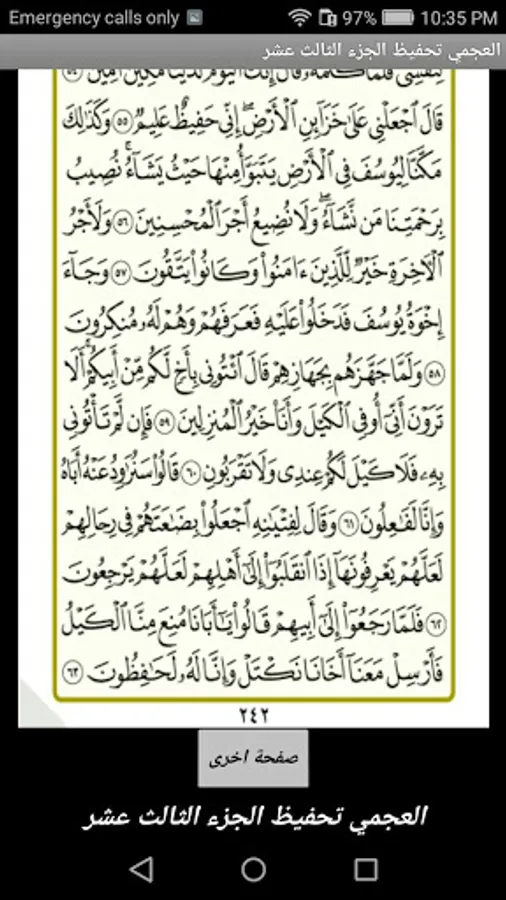 Emergency calls only 97% 10:35 PM
العجمي تحفيظ الجزء الثالث عشر
قَالَ ٱجْعَلْنِى عَلَىٰ خَزَآئِنِ ٱلْأَرْضِ ۖ إِنِّى حَفِيظٌ عَلِيمٌ ﴿٥٥﴾ وَكَذَٰلِكَ
مَكَّنَّا لِيُوسُفَ فِى ٱلْأَرْضِ يَتَبَوَّأُ مِنْهَا حَيْثُ يَشَآءُ ۚ نُصِيبُ
بِرَحْمَتِنَا مَن نَّشَآءُ ۖ وَلَا نُضِيعُ أَجْرَ ٱلْمُحْسِنِينَ ﴿٥٦﴾ وَلَأَجْرُ
ٱلْـَٔاخِرَةِ خَيْرٌ لِّلَّذِينَ ءَامَنُوا۟ وَكَانُوا۟ يَتَّقُونَ ﴿٥٧﴾ وَجَآءَ
إِخْوَةُ يُوسُفَ فَدَخَلُوا۟ عَلَيْهِ فَعَرَفَهُمْ وَهُمْ لَهُۥ مُنكِرُونَ
﴿٥٨﴾ وَلَمَّا جَهَّزَهُم بِجَهَازِهِمْ قَالَ ٱئْتُونِى بِأَخٍ لَّكُم مِّنْ أَبِيكُمْ ۚ أَلَا
تَرَوْنَ أَنِّىٓ أُوفِى ٱلْكَيْلَ وَأَنَا۠ خَيْرُ ٱلْمُنزِلِينَ ﴿٥٩﴾ فَإِن لَّمْ تَأْتُونِى
بِهِۦ فَلَا كَيْلَ لَكُمْ عِندِى وَلَا تَقْرَبُونِ ﴿٦٠﴾ قَالُوا۟ سَنُرَٰوِدُ عَنْهُ أَبَاهُ
وَإِنَّا لَفَٰعِلُونَ ﴿٦١﴾ وَقَالَ لِفِتْيَٰنِهِ ٱجْعَلُوا۟ بِضَٰعَتَهُمْ فِى رِحَالِهِمْ
لَعَلَّهُمْ يَعْرِفُونَهَآ إِذَا ٱنقَلَبُوٓا۟ إِلَىٰٓ أَهْلِهِمْ لَعَلَّهُمْ يَرْجِعُونَ
﴿٦٢﴾ فَلَمَّا رَجَعُوٓا۟ إِلَىٰٓ أَبِيهِمْ قَالُوا۟ يَٰٓأَبَانَا مُنِعَ مِنَّا ٱلْكَيْلُ
فَأَرْسِلْ مَعَنَآ أَخَانَا نَكْتَلْ وَإِنَّا لَهُۥ لَحَٰفِظُونَ ﴿٦٣﴾
٢٤٢
صفحة اخرى
العجمي تحفيظ الجزء الثالث عشر